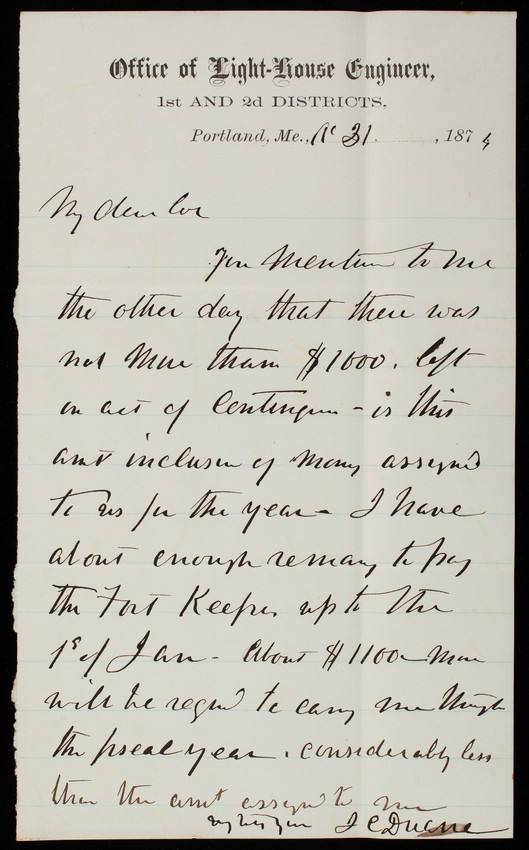 Office of Light-House Engineer,
1st AND 2d DISTRICTS.
Portland, Me., 31, 1874
My dear Col
You mention to me
the other day that there was
not more than $1000. left
on act of Contingen - is this
amt inclusive of money assigned
to us for the year - I have
about enough remaing to pay
the Fort Keepers up to the
1st of Jan - About $1100 more
will be reqd to carry me through
the fiscal year. considerably less
than the amt assignd to me
J C Duane